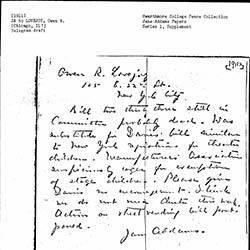 [1911]
JA to LOVEJOY, Owen R.
[Chicago, Il?]
Telegram draft
Swarthmore College Peace Collection
Jane Addams Papers
Series 1, Supplement
[1911]
Owen R. Lovejoy
105 E. 22nd St.
New York City
Bill two three three still in
Committee probably dead. Was
substitute for Davis' bill similar
to New York for theatre
children. Manufacturers Association
suspiciously eager for exemption
of stage children. Please give
Davis no encouragement. I think
we do not need this week.
Action on street trading bill post-
poned.
Jane Addams.